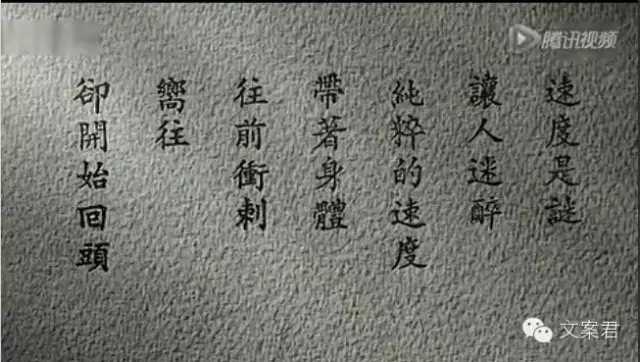 速度是謎
讓人迷醉
純粹的速度
帶著身體
往前衝刺
嚮往
卻開始回頭
腾讯视频
文案君